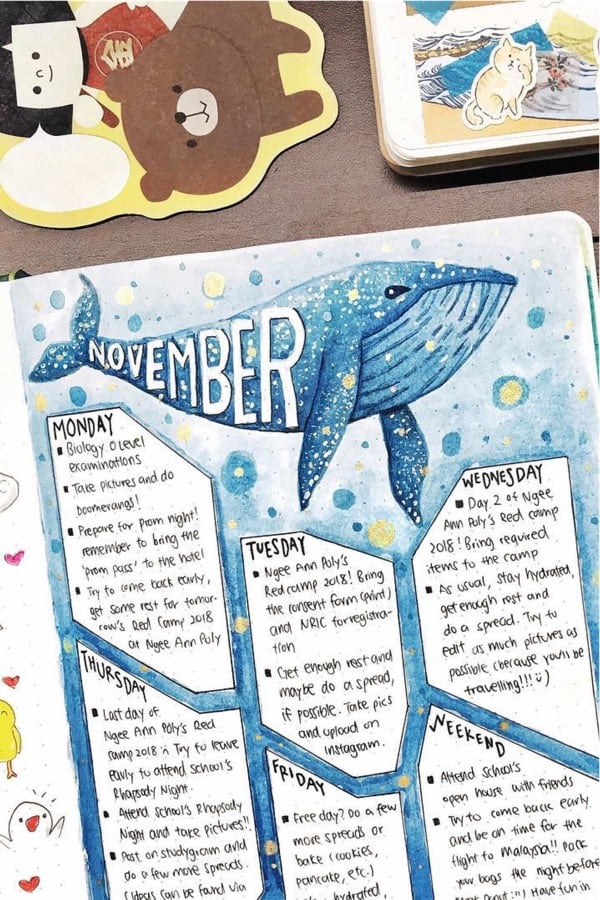 NOVEMBER
MONDAY
Biology O Level
examinations
Take pictures and do
boomerangs!
Prepare for prom night!
remember to bring the
'prom pass' to the hotel
Try to come back early,
get some rest for tomor-
row's Red Camp 2018
at Ngee Ann Poly
TUESDAY
Ngee Ann Poly's
Red camp 2018! Bring
the consent form (print)
and NRIC for registra-
tion
Get enough rest and
maybe do a spread,
if possible. Take pics
and upload on
Instagram.
WEDNESDAY
Day 2 of Ngee
Ann Poly's Red camp
2018! Bring required
items to the camp
As usual, stay hydrated,
get enough rest and
do a spread. Try to
edit as much pictures as
possible (because you'll be
travelling!!! :)
THURSDAY
Last day of
Ngee Ann Poly's Red
camp 2018 Try to leave
early to attend school's
Rhapsody Night.
Attend school's Rhapsody
Night and take pictures!!
Post on studygram and
do a few more spreads.
(Ideas can be found via
FRIDAY
Free day? Do a few
more spreads or
bake (cookies,
pancake, etc.)
hydrated,
WEEKEND
Attend school's
open house with friends
Try to come back early
and be on time for the
flight to Malaysia!! Pack
your bags the night before
Have fun in